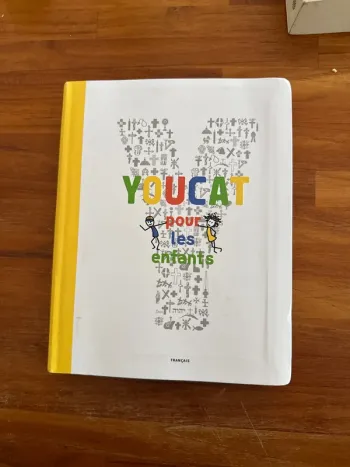 YOUCAT
pour
les
enfants
FRANÇAIS